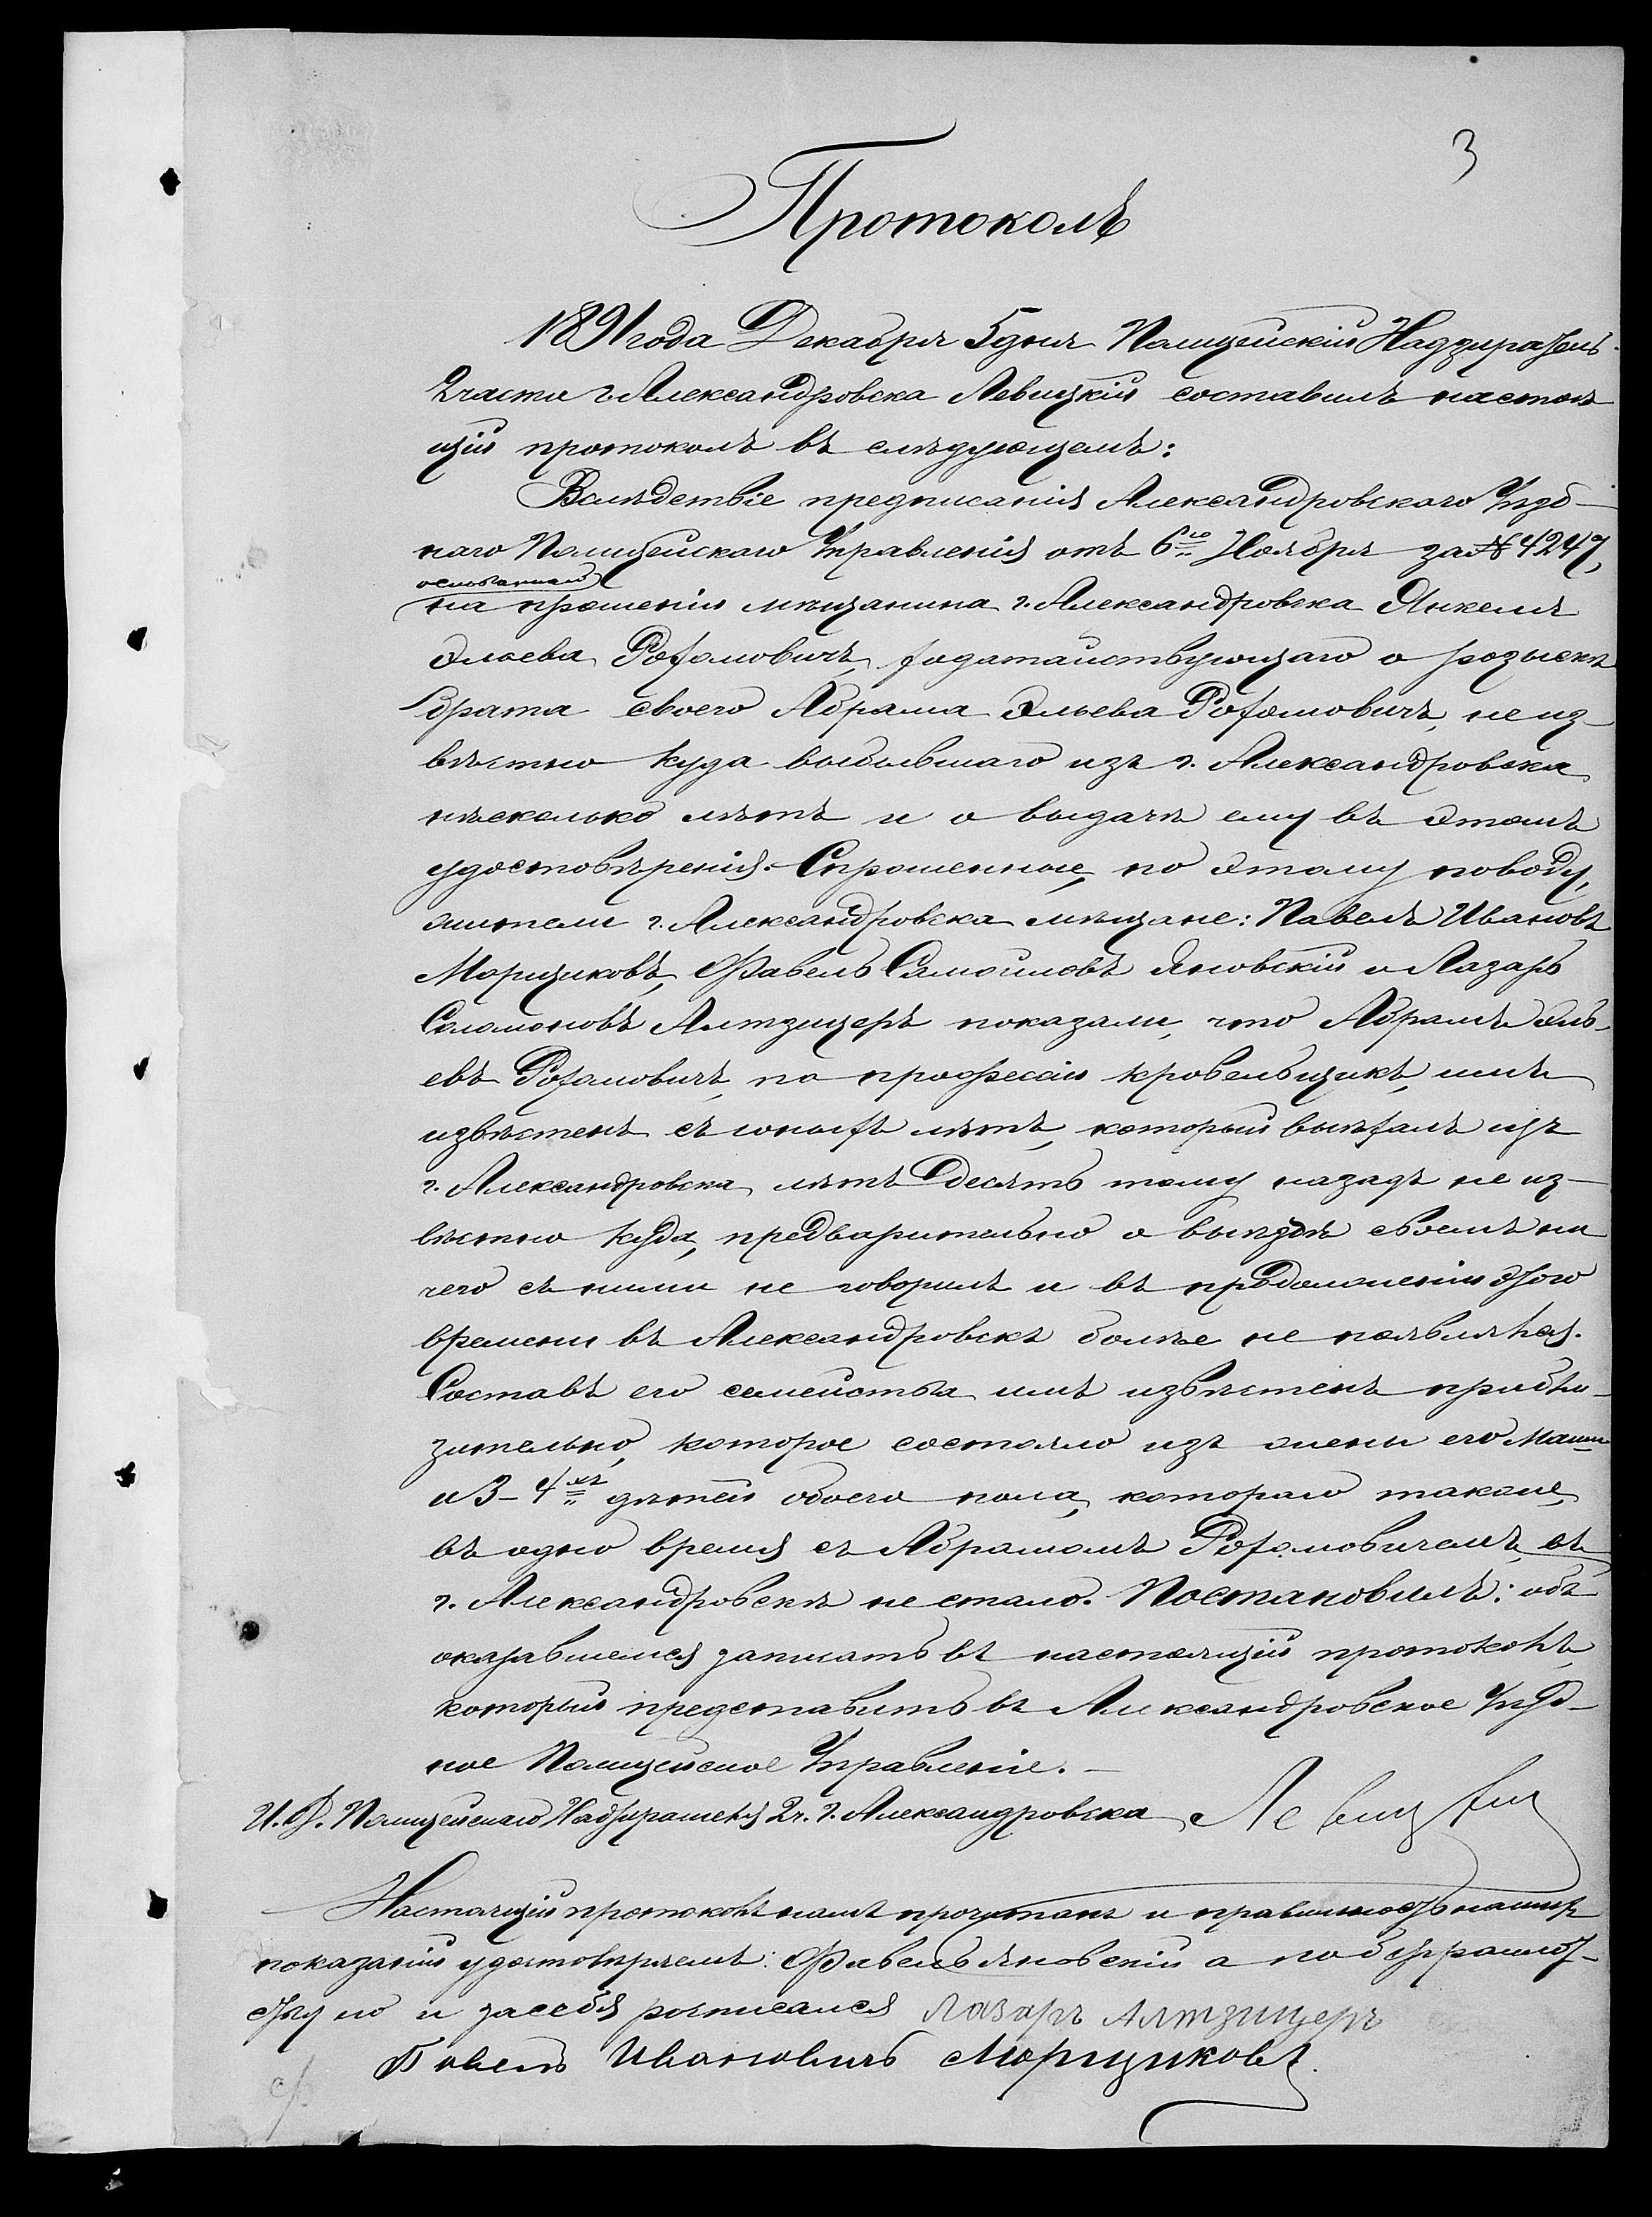 3
Протоколъ
1891 года Декабря 5 дня Полицейскій Надзиратель
2 части г. Александровска Левицкій составилъ настоя
щій протоколъ въ слѣдующемъ:
Вслѣдствіе предписанія Александровскаго Уѣзд-
наго Полицейскаго Управленія отъ 6го Ноября за № 4247,
основаннаго
на прошеніи мѣщанина г. Александровска Янкеля
Эльева Рохмовичъ, ходатайствующаго о розыскѣ
брата своего Абрама Эльева Рохмовичъ, не из-
вѣстно куда выбывшаго изъ г. Александровска
нѣсколько лѣтъ и о выдачѣ ему въ этомъ
удостовѣренія. Спрошенные, по этому поводу,
жители г. Александровска мѣщане: Павелъ Ивановъ
Морщиковъ, Фавель Самойловъ Яновскій и Лазарь
Соломоновъ Алтзицеръ показали, что Абрамъ Эль-
евъ Рохмовичъ, по профессіи кровельщикъ, имъ
извѣстенъ съ юныхъ лѣтъ, который выѣхалъ изъ
г. Александровска, лѣтъ десять тому назадъ не из-
вѣстно куда, предварительно о выѣздѣ своемъ ни
чего съ ними не говорилъ и въ продолженіи этого
времени въ Александровскѣ болѣе не появлялся.
Составъ его семейства имъ извѣстенъ прибли-
зительно, которое состояло изъ жены его Маши
и 3-4хъ дѣтей обоего пола, котораго также,
въ одно время съ Абрамомъ Рохмовичемъ, въ
г. Александровскѣ не стало. Постановилъ: объ
оказавшемся записать въ настоящій протоколъ,
который представить въ Александровское Уѣзд-
ное Полицейское Управленіе.-
И. д. Полицейскаго Надзирателя 2 ч. г. Александровска Левицкій
Настоящій протоколъ намъ прочитанъ и правильность нашихъ
показаній удостовѣряемъ: Фавель Яновскій а по безграмот-
ству его и за себя росписался Лазарь Алтзицеръ
Павелъ Ивановичъ Морщиковъ.